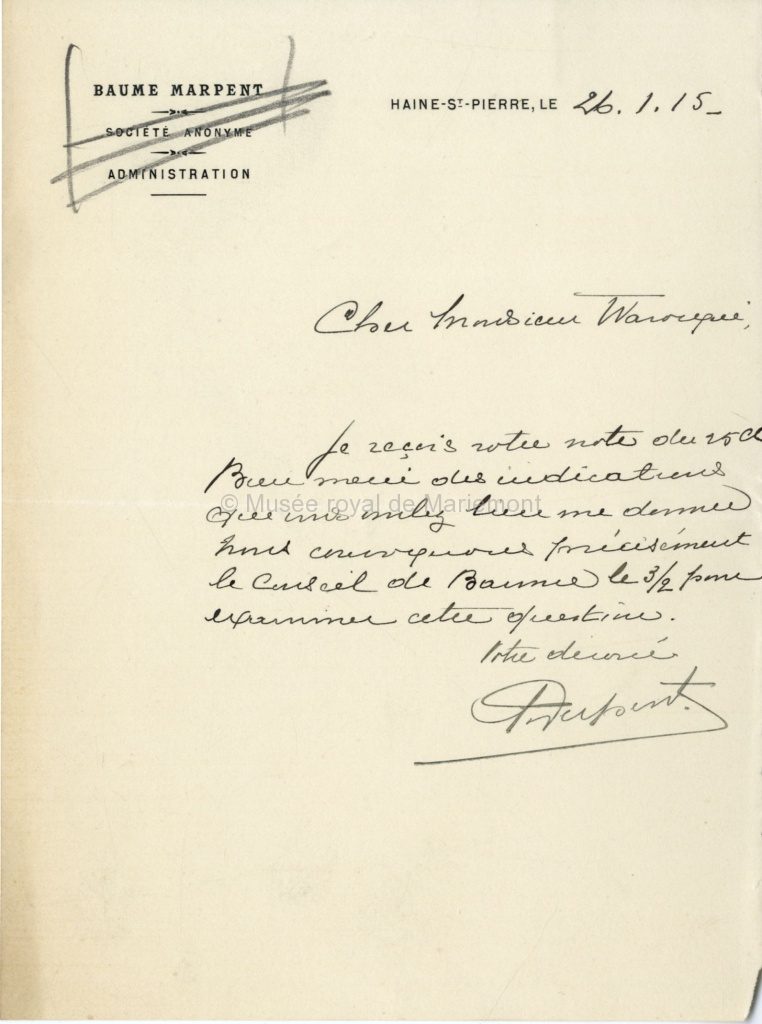 BAUME MARPENT
SOCIÉTÉ ANONYME
ADMINISTRATION
HAINE-ST-PIERRE, LE 26.1.15_
Cher Monsieur Warocqué,
Je reçois votre note du 25 Ct
Bien merci des indications
que vous voulez bien me donner
© Musée royal de Mariemont
Nous convoquons précisément
le Conseil de Baume le 3/2 pour
examiner cette question.
Votre dévoué